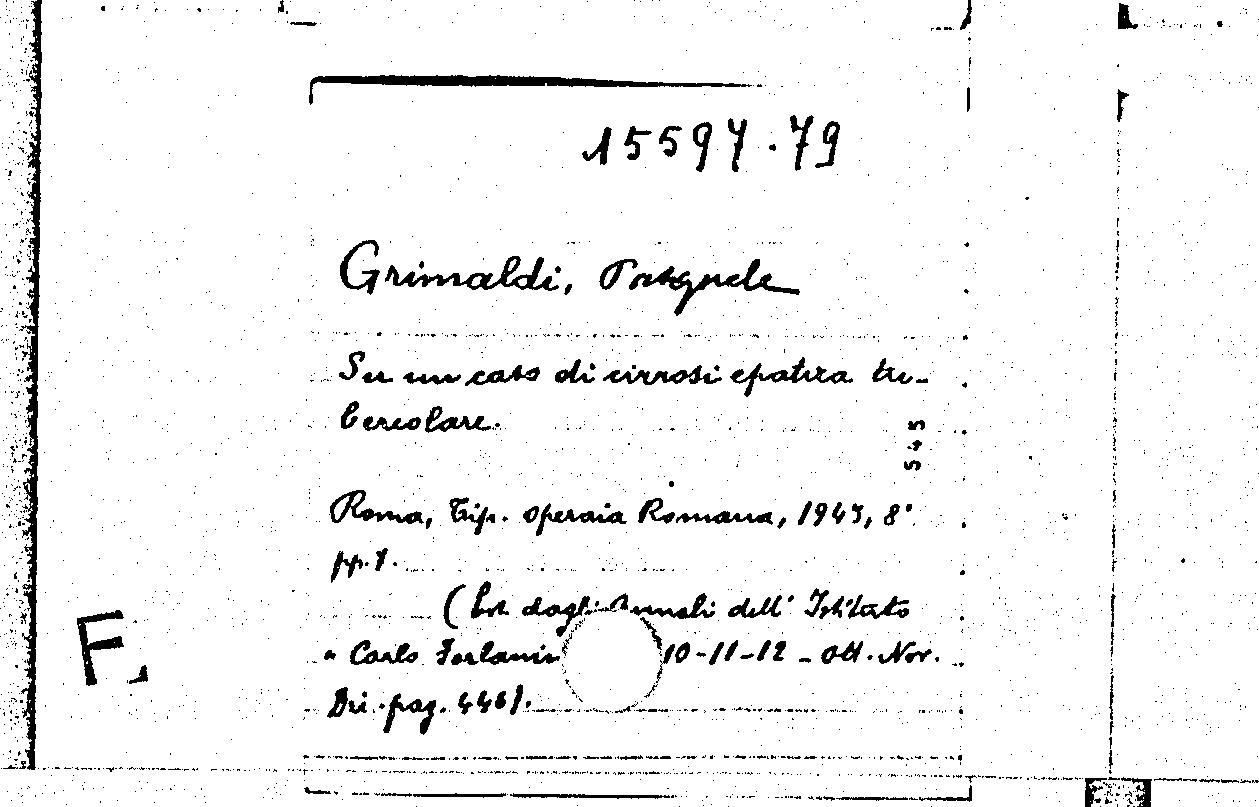 15597.79
Grimaldi, Pasquale
Su un caso di cirrosi epatica tu-
bercolare.
545
Roma, Tip. Operaia Romana, 1943, 8°
pp.
(Est. dagli Annali dell' Istituto
"Carlo Forlanin 10-11-12 - Ott. Nov.
Dic. pag. 446).
F.